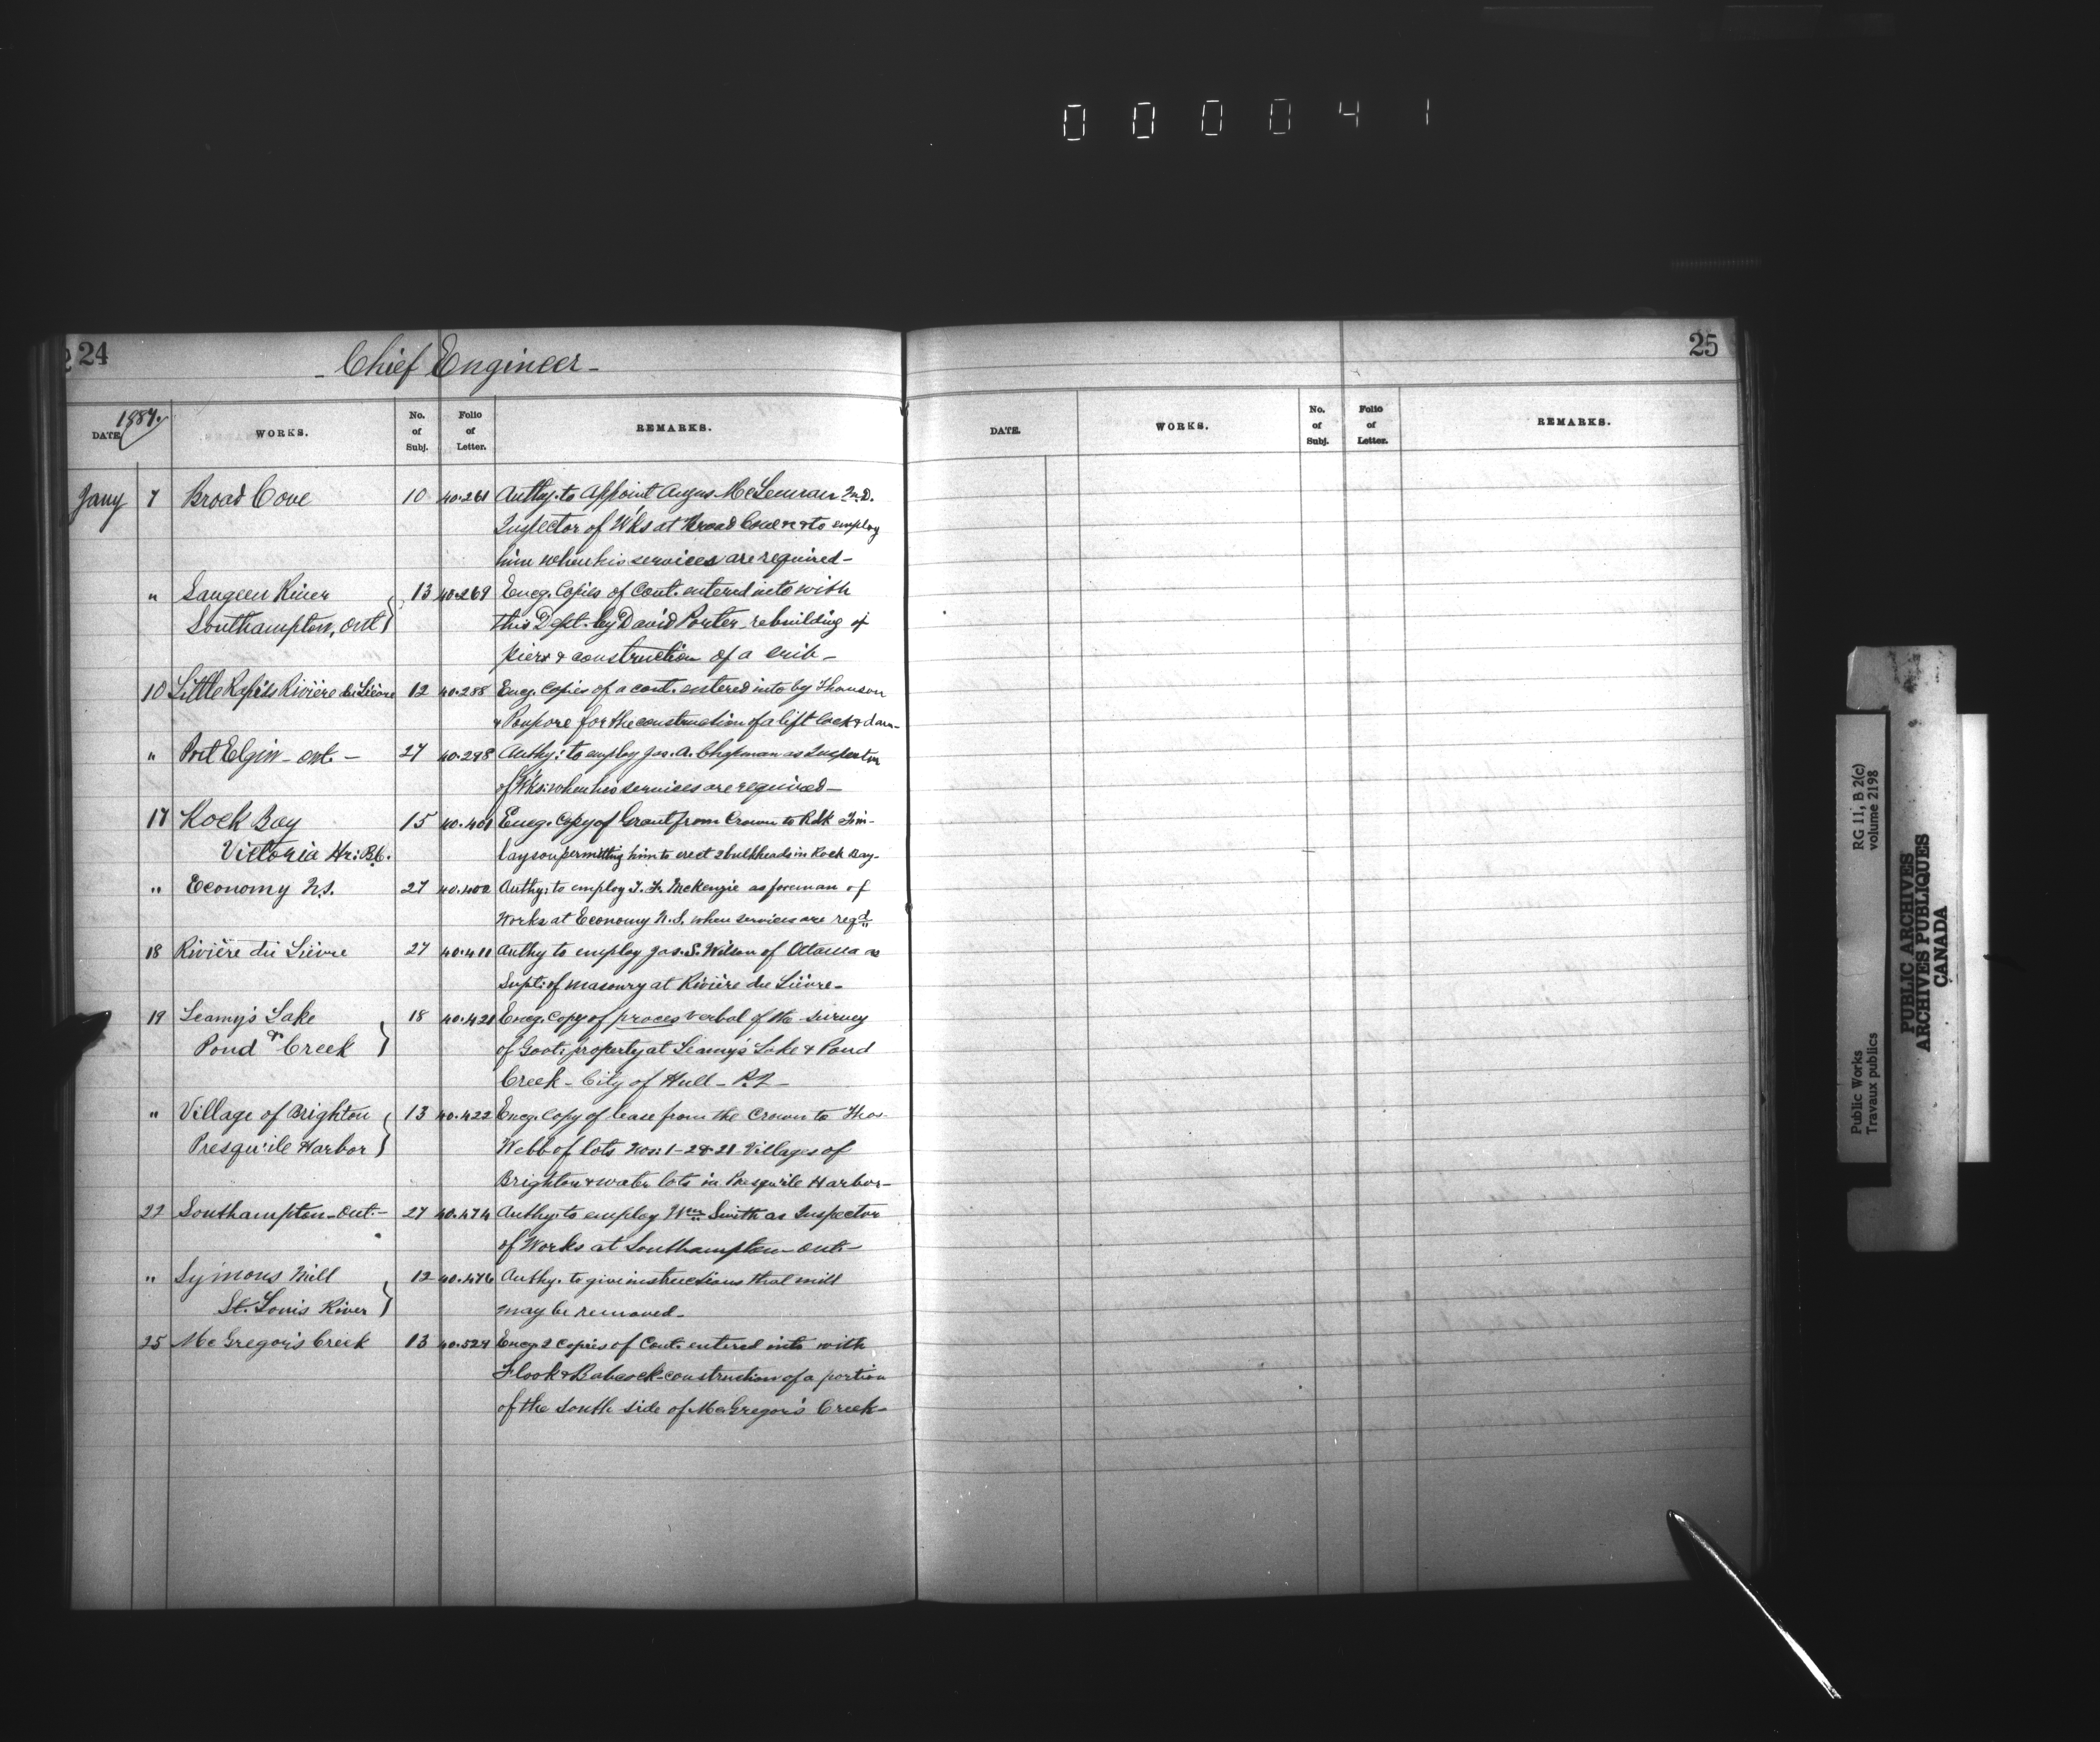 000041
24
- Chief Engineer -
1887.
DATE
WORKS.
No. of Subj.
Folio of Letter.
REMARKS.
Jany 7 Broad Cove 10 40.261 Authy. to Appoint Angus McLennan
Inspector of Wks at Broad Cove & to employ
him when his services are required -
" Saugeen River 13 40.269 Encg. Copies of Cont. entered into with
Southampton, Ont } this Dept. by David Porter, rebuilding of
piers & construction of a crib -
10 Little Rapids Rivière du Lièvre 12 40.288 Encg. Copies of a cont. entered into by Thomson
& Poupore for the construction of a lift lock & dam -
" Port Elgin - Ont. - 27 40.298 Authy: to employ Jas. A. Chapman as Inspector
of Wks: when his services are required -
17 Rock Bay 15 40.401 Encg. Copy of Grant from Crown to Rdk Fin-
Victoria Hr: B.C. layson permitting him to erect 2 bulkheads in Rock Bay -
" Economy N.S. 27 40.402 Authy: to employ J. F. McKenzie as foreman of
Works at Economy N.S. when services are reqd
18 Rivière du Lièvre 27 40.411 Authy to employ Jas. S. Wilson of Ottawa as
Supt: of masonry at Rivière du Lièvre -
19 Leamy's Lake 18 40.421 Encg. Copy of proces verbal of the survey
& Pond Creek } of Govt: property at Leamy's Lake & Pond
Creek - City of Hull - P.Q -
" Village of Brighton 13 40.422 Encg. Copy of lease from the Crown to Thos.
Presqu'ile Harbor } Webb of lots Nos: 1-2 & 21 Villages of
Brighton & water lots in Presqu'ile Harbor -
22 Southampton - Ont: - 27 40.474 Authy: to employ Wm Smith as Inspector
of Works at Southampton - Ont: -
" Symons Mill 12 40.476 Authy. to give instructions that mill
St. Louis River } may be removed -
25 McGregor's Creek 13 40.527 Encg. 2 Copies of Cont. entered into with
Flook & Babcock - construction of a portion
of the south side of McGregor's Creek -
25
DATE.
WORKS.
No. of Subj.
Folio of Letter.
REMARKS.
Public Works
Travaux publics
RG 11, B 2(c)
volume 2198
PUBLIC ARCHIVES
ARCHIVES PUBLIQUES
CANADA